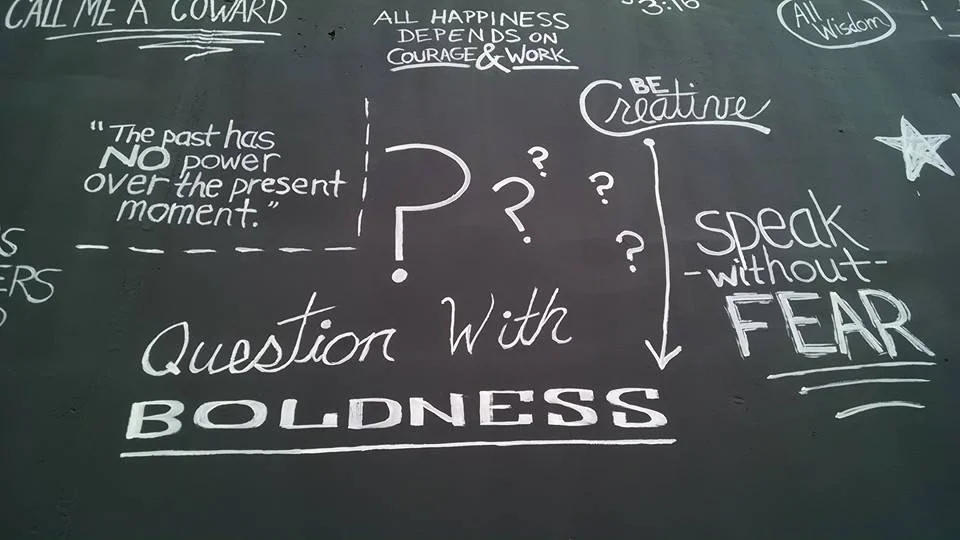 CALL ME A COWARD
ALL HAPPINESS
DEPENDS ON
COURAGE & WORK
3:16
All
Wisdom
BE
Creative
"The past has
NO power
over the present
moment."
? ? ? ? ?
speak
-without-
FEAR
S
ERS
Question With
BOLDNESS